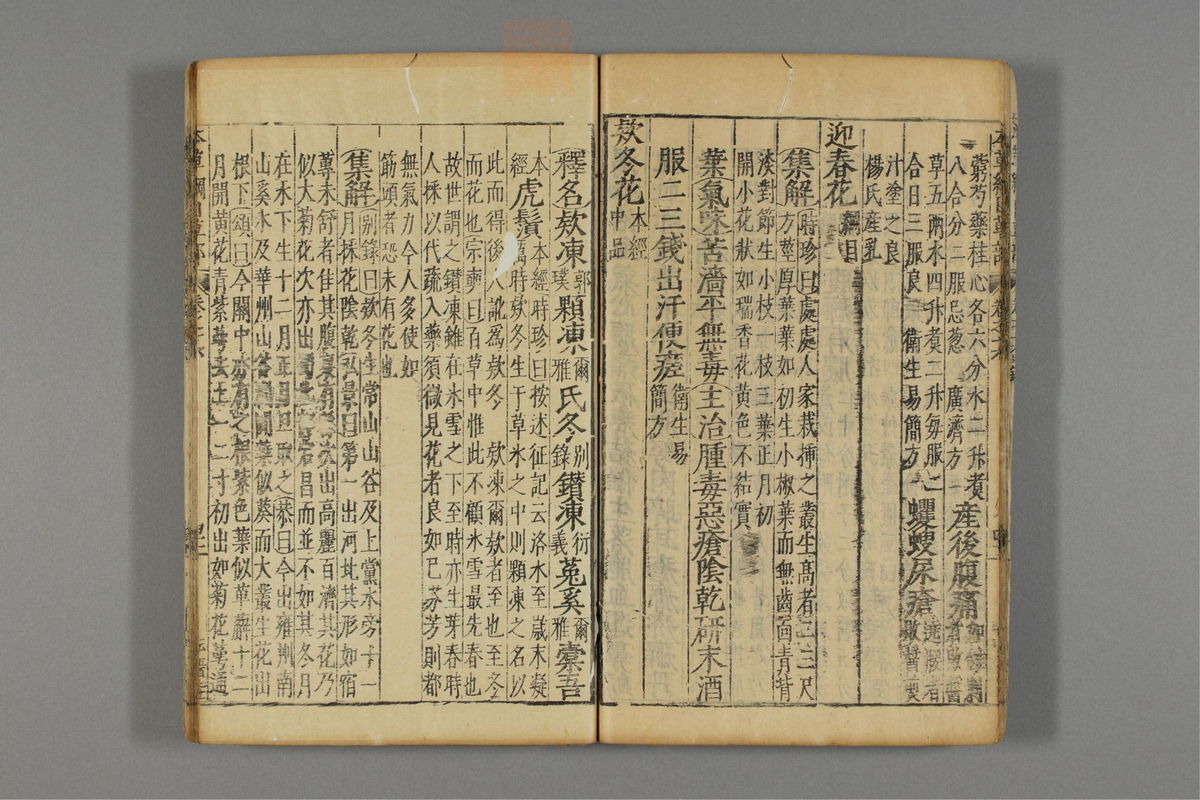 藭芍藥桂心各六分水二升煮
八合分二服忌葱 廣濟方
產後腹痛
草五兩水四升煮二升每服二
合日三服良 衛生易簡方
蠷螋尿瘡
汁塗之良
楊氏產乳
迎春花 綱目
集解 時珍曰處處人家栽插之叢生高者二三尺
方莖厚葉葉如初生小椒葉而無齒面青背
淡對節生小枝一枝三葉正月初
開小花狀如瑞香花黃色不結實
葉氣味苦濇平無毒主治腫毒惡瘡陰乾研末酒
服二三錢出汗便瘥 衛生易簡方
欵冬花 本經中品
釋名欵凍 郭璞 顆凍 爾雅 氏冬 別錄 鑽凍 衍義 菟奚 爾雅 橐吾
本經 虎鬚 本經時珍曰按述征記云洛水至歲末凝
厲時欵冬生于草冰之中則顆凍之名以
此而得後人訛為欵冬 欵凍爾欵者至也至冬
而花也宗奭曰百草中惟此不顧冰雪最先春也
故世謂之鑽凍雖在冰雪之下至時亦生芽春時
人採以代蔬入藥須微見花者良如已芬芳則都
無氣力今人多使如
筯頭者恐未有花也
集解 別錄曰欵冬生常山山谷及上黨水旁十一
月採花陰乾弘景曰第一出河北其形如宿
蓴未舒者佳其腹裏有絲次出高麗百濟其花乃
似大菊花次亦出蜀北宕昌而並不如其冬月
在冰下生十二月正月旦取之恭曰今出雍州南
山溪水及華州山谷澗間葉似葵而大叢生花出
根下頌曰今關中亦有之根紫色葉似萆薢十二
月開黃花青紫萼去土一二寸初出如菊花萼通